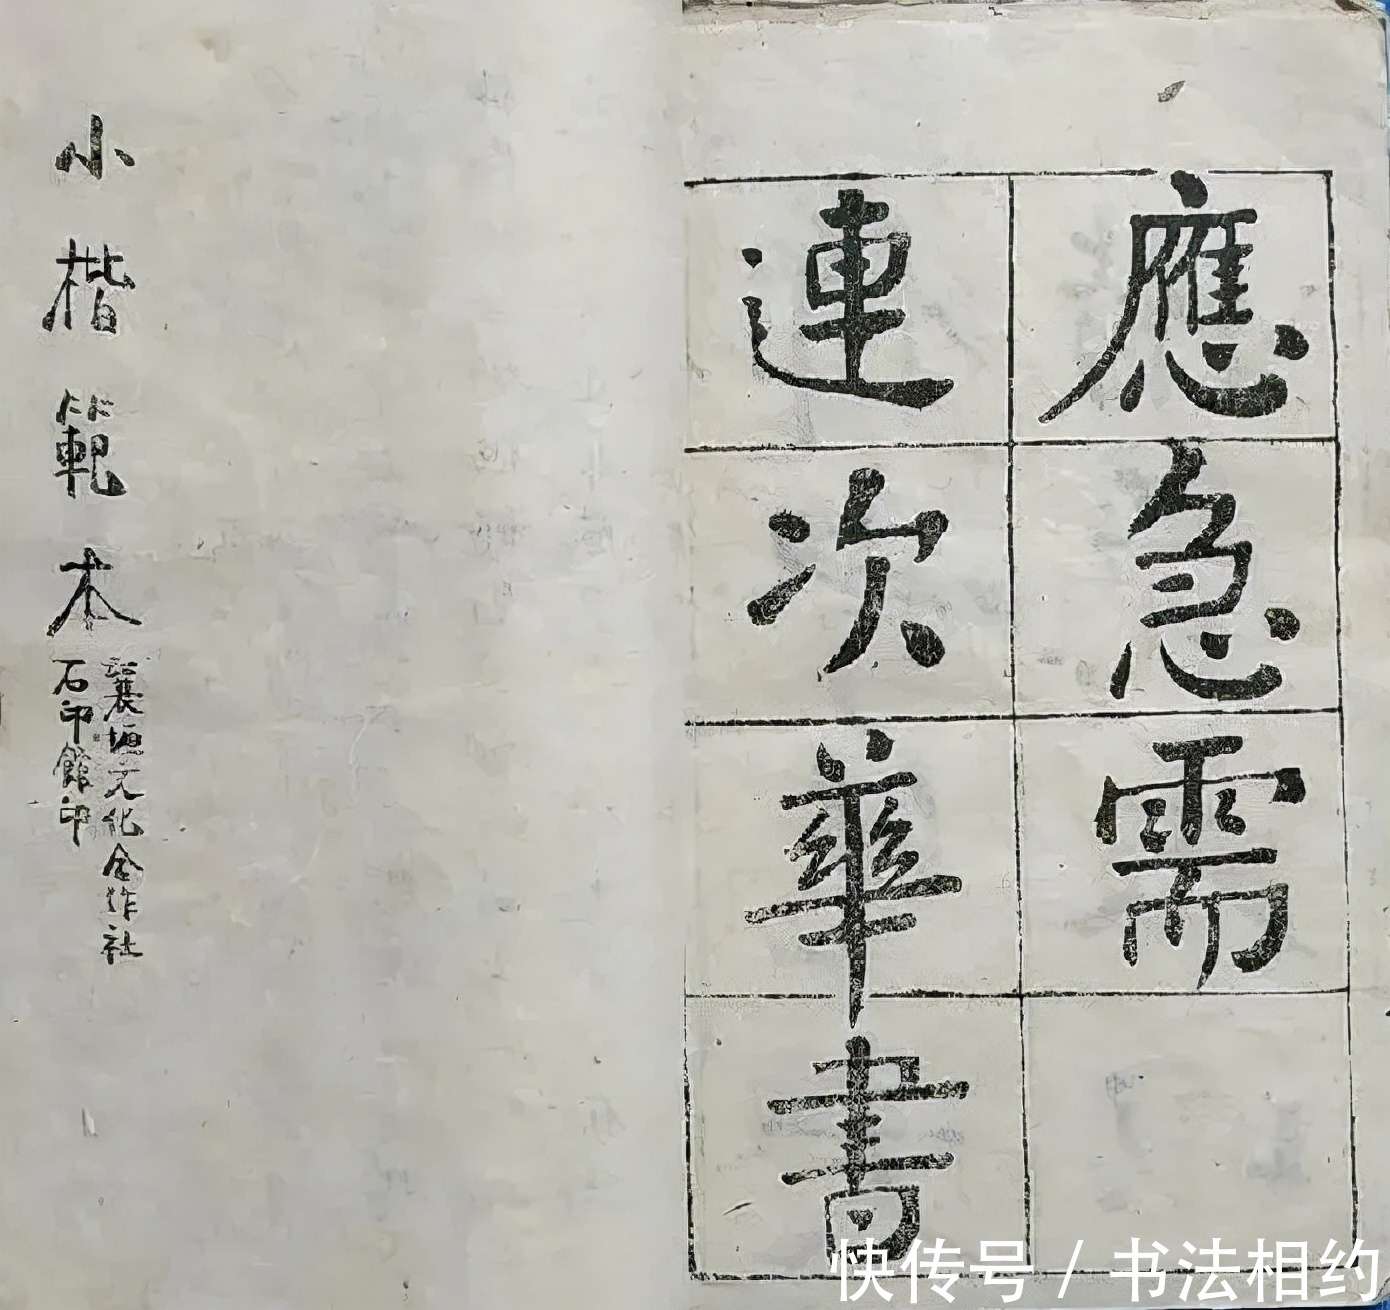 應急需
連次華書
小楷範本
襄垣文化合作社
石印館印
快传号 / 书法相约